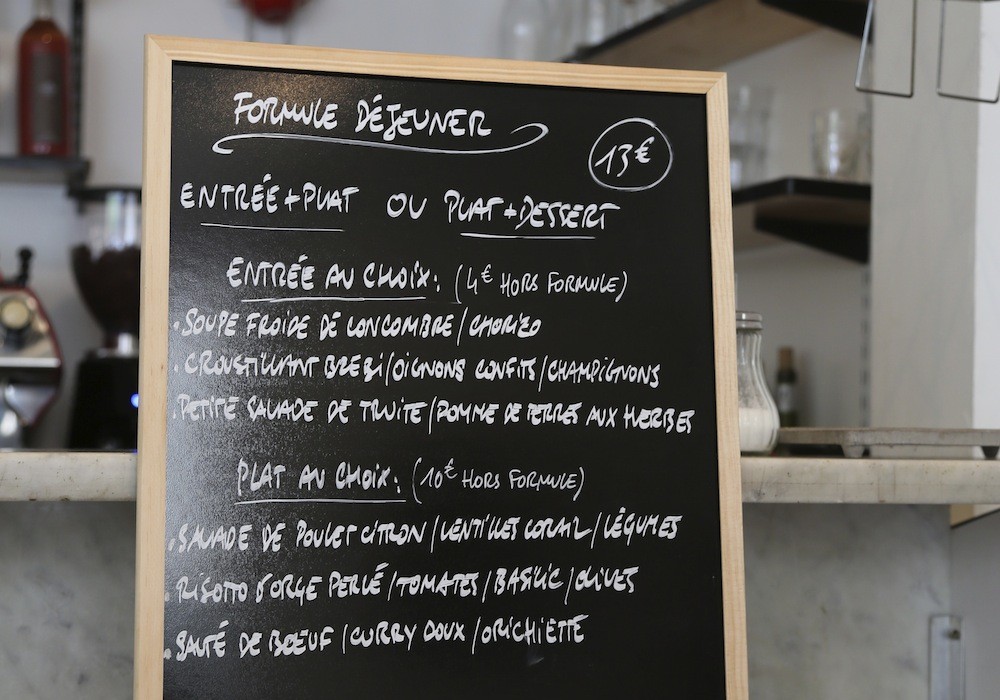 FORMULE DÉJEUNER
13€
ENTRÉE+PLAT OU PLAT+DESSERT
ENTRÉE AU CHOIX: (4€ HORS FORMULE)
. SOUPE FROIDE DE CONCOMBRE/CHORIZO
. CROUSTILLANT BREBI/OIGNONS CONFITS/CHAMPIGNONS
. PETITE SALADE DE TRUITE/POMME DE TERRES AUX HERBES
PLAT AU CHOIX: (10€ HORS FORMULE)
. SALADE DE POULET CITRON/LENTILLES CORAIL/LÉGUMES
. RISOTTO D'ORGE PERLÉ/TOMATES/BASILIC/OLIVES
. SAUTÉ DE BŒUF/CURRY DOUX/ORICHIETTE